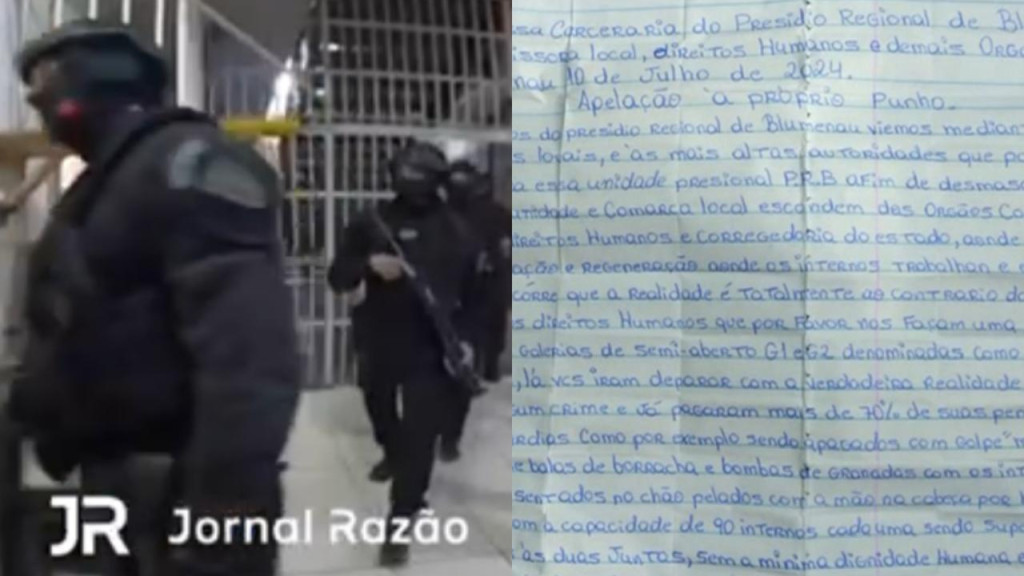 JR Jornal Razão
sa Carceraria do Presídio Regional de Bl
issora local, direitos Humanos e demais Orgã
nau 10 de Julho de 2024.
Apelação à próprio Punho.
os do presídio Regional de Blumenau viemos median
s locais, e as mais altas autoridades que po
a essa unidade presional P.R.B afim de desmasc
unidade e Comarca local escondem das Orgãos Co
ireitos Humanos e Corregedoria do estado, aonde
ação e Regeneração aonde os internos trabalhan e
corre que a Realidade é totalmente ao contrario do
s direitos Humanos que por Favor nos Façam uma
Galerias de semi-aberto G1 e G2 denominadas como
, lá vcs iram deparar com a verdadeira Realidade
um crime e Já pagaram mais de 70% de suas pen
rdias Como por exemplo sendo apagados com Golpe "m
e balas de borracha e bombas de Granadas com os int
sentados no chão pelados com a mão na cabesa por h
om a capacidade de 90 internos cada uma sendo supe
as duas Juntas, sem a mínima dignidade Humana e